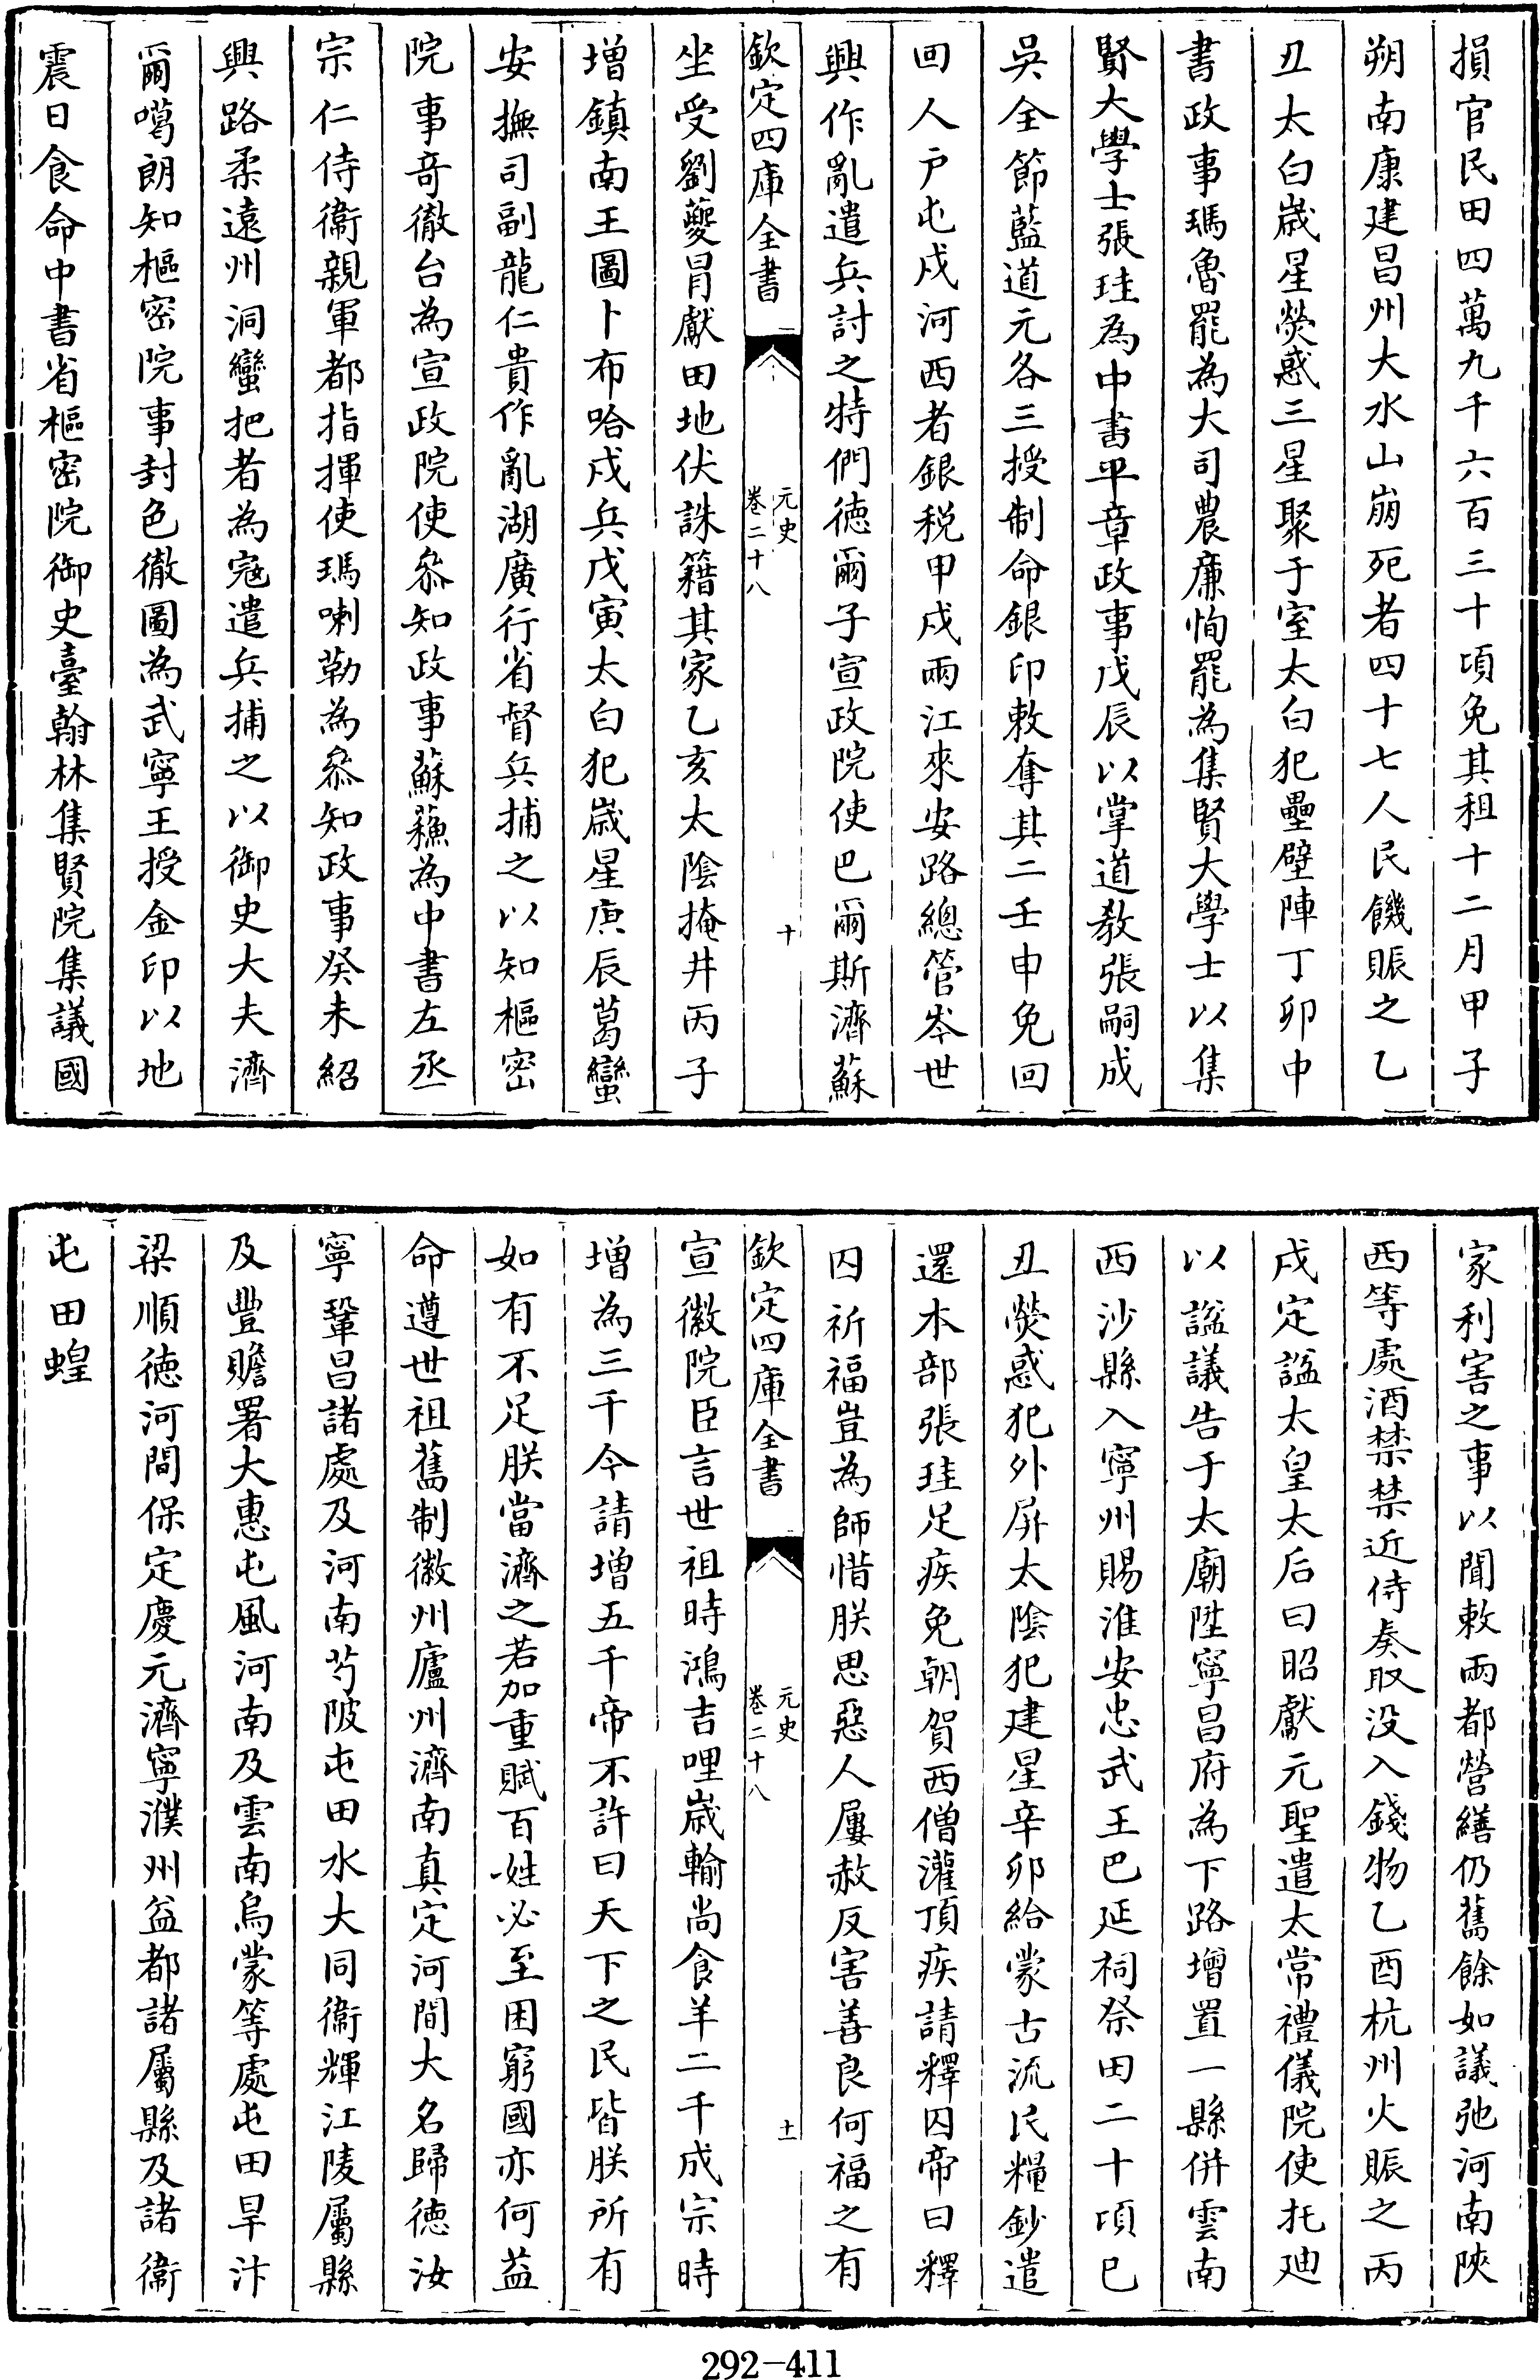 損官民田四萬九千六百三十頃免其租十二月甲子
朔南康建昌州大水山崩死者四十七人民饑賑之乙
丑太白歲星熒惑三星聚于室太白犯壘壁陣丁卯中
書政事瑪魯罷為大司農廉恂罷為集賢大學士以集
賢大學士張珪為中書平章政事戊辰以掌道教張嗣成
吳全節藍道元各三授制命銀印敕奪其二壬申免回
回人戶屯戍河西者銀稅甲戌兩江來安路總管岑世
興作亂遣兵討之特們德爾子宣政院使巴爾斯濟蘇
欽定四庫全書
元史
卷二十八
十
坐受劉夔冒獻田地伏誅籍其家乙亥太陰掩井丙子
增鎮南王圖卜布哈戍兵戊寅太白犯歲星庚辰葛蠻
安撫司副龍仁貴作亂湖廣行省督兵捕之以知樞密
院事竒徹台為宣政院使叅知政事蘇蘓為中書左丞
宗仁侍衞親軍都指揮使瑪喇勒為叅知政事癸未紹
興路柔遠州洞蠻把者為寇遣兵捕之以御史大夫濟
爾噶朗知樞密院事封色徹圖為武寧王授金印以地
震日食命中書省樞密院御史臺翰林集賢院集議國
家利害之事以聞敕兩都營繕仍舊餘如議弛河南陝
西等處酒禁禁近侍奏取没入錢物乙酉杭州火賑之丙
戌定諡太皇太后曰昭獻元聖遣太常禮儀院使托廸
以諡議告于太廟陞寧昌府為下路增置一縣併雲南
西沙縣入寧州賜淮安忠武王巴延祠祭田二十頃己
丑熒惑犯外屏太陰犯建星辛卯給蒙古流民糧鈔遣
還本部張珪足疾免朝賀西僧灌頂疾請釋囚帝曰釋
囚祈福豈為師惜朕思惡人屢赦反害善良何福之有
欽定四庫全書
元史
卷二十八
十一
宣徽院臣言世祖時鴻吉哩歲輸尚食羊二千成宗時
增為三千今請增五千帝不許曰天下之民皆朕所有
如有不足朕當濟之若加重賦百姓必至困窮國亦何益
命遵世祖舊制徽州廬州濟南真定河間大名歸德汝
寧鞏昌諸處及河南芍陂屯田水大同衞輝江陵屬縣
及豐贍署大惠屯風河南及雲南烏蒙等處屯田旱汴
梁順德河間保定慶元濟寧濮州益都諸屬縣及諸衞
屯田蝗
292-411